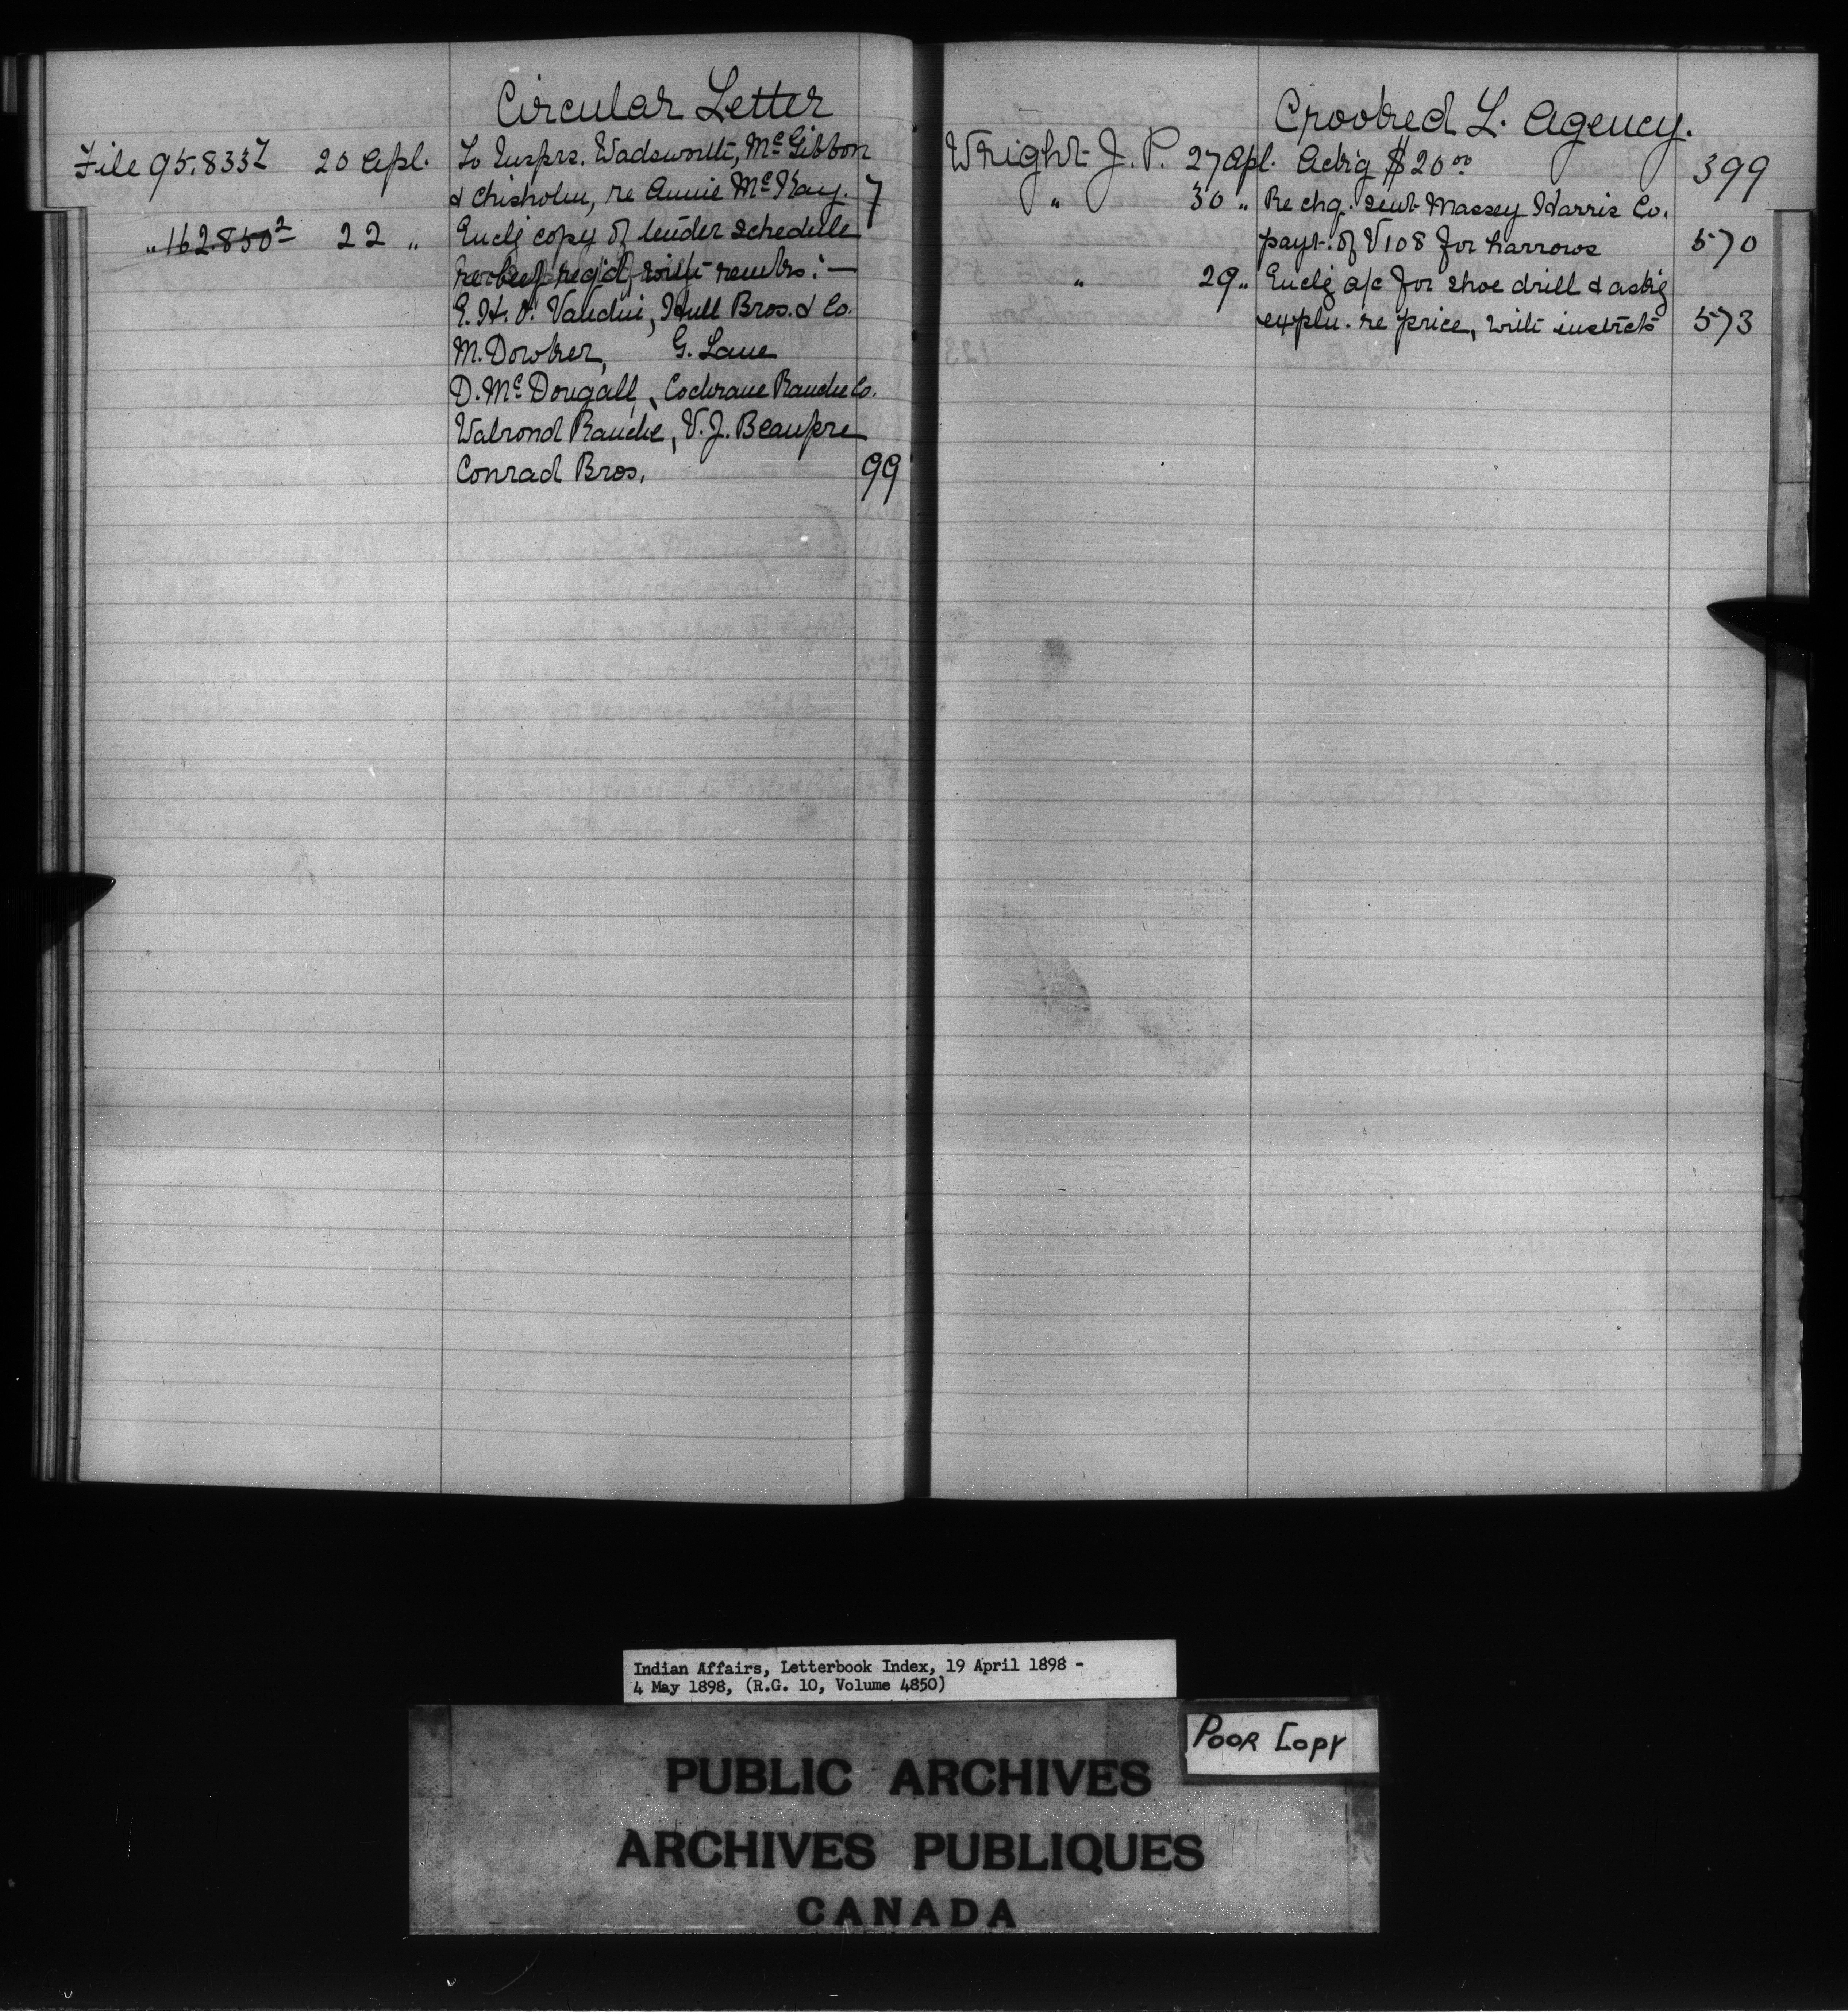 Circular Letter
File 95.833Z 20 Apl. To Insprs. Wadsworth, McGibbon
& Chisholm, re Annie McKay. 7
" 162.850² 22 " Enclg copy of tender schedule
re beef req'd, with remrks:—
E. H. Hull Bros. & Co.
M. Dowker, G. Lane
D. McDougall, Cochrane Ranche Co.
Walrond Ranche, V. J. Beaupre
Conrad Bros. 99
Crooked L. Agency.
Wright J. P. 27 Apl. Ackg $20 00 399
" 30 " Re chq. sent Massey Harris Co.
payt. of V108 for harrows 570
" 29 " Enclg a/c for shoe drill & askg
expln. re price, with instrcts 573
Indian Affairs, Letterbook Index, 19 April 1898 -
4 May 1898, (R.G. 10, Volume 4850)
POOR COPY
PUBLIC ARCHIVES
ARCHIVES PUBLIQUES
CANADA